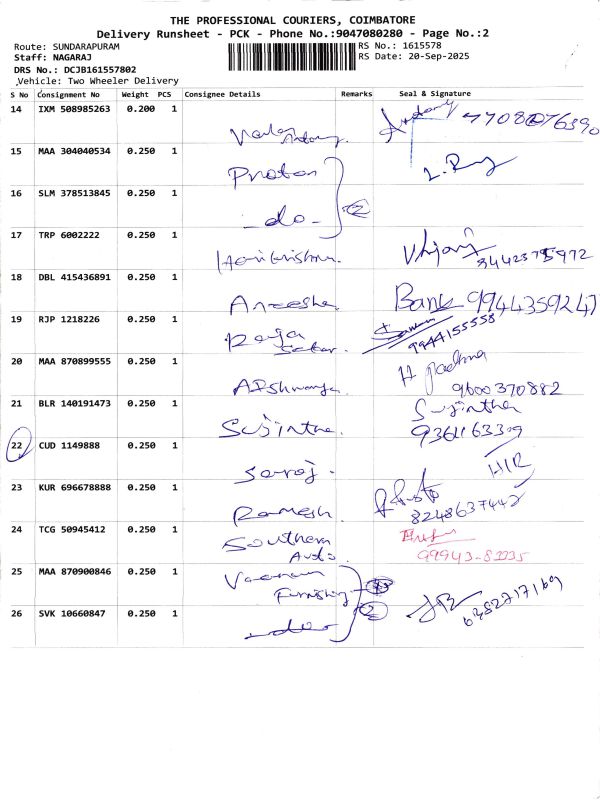 THE PROFESSIONAL COURIERS, COIMBATORE
Delivery Runsheet - PCK - Phone No.:9047080280 - Page No.:2
Route: SUNDARAPURAM RS No.: 1615578
Staff: NAGARAJ RS Date: 20-Sep-2025
DRS No.: DCJB161557802
Vehicle: Two Wheeler Delivery
S No Consignment No Weight PCS Consignee Details Remarks Seal & Signature
14 IXM 508985263 0.200 1
15 MAA 304040534 0.250 1 Proton
16 SLM 378513845 0.250 1 -do- 2
17 TRP 6002222 0.250 1 Harikrishna.
18 DBL 415436891 0.250 1 Aneesha Banu 9944359247
19 RJP 1218226 0.250 1 Raja 9944155558
20 MAA 870899555 0.250 1 Aishwarya H Padma
9600370882
21 BLR 140191473 0.250 1 Sujintha. Sujintha
9361163309
22 CUD 1149888 0.250 1 Saroj. H/R
23 KUR 696678888 0.250 1 Ramesh 8248637442
24 TCG 50945412 0.250 1 Southern
Auto
25 MAA 870900846 0.250 1 Furnishing
26 SVK 10660847 0.250 1 -do- 2